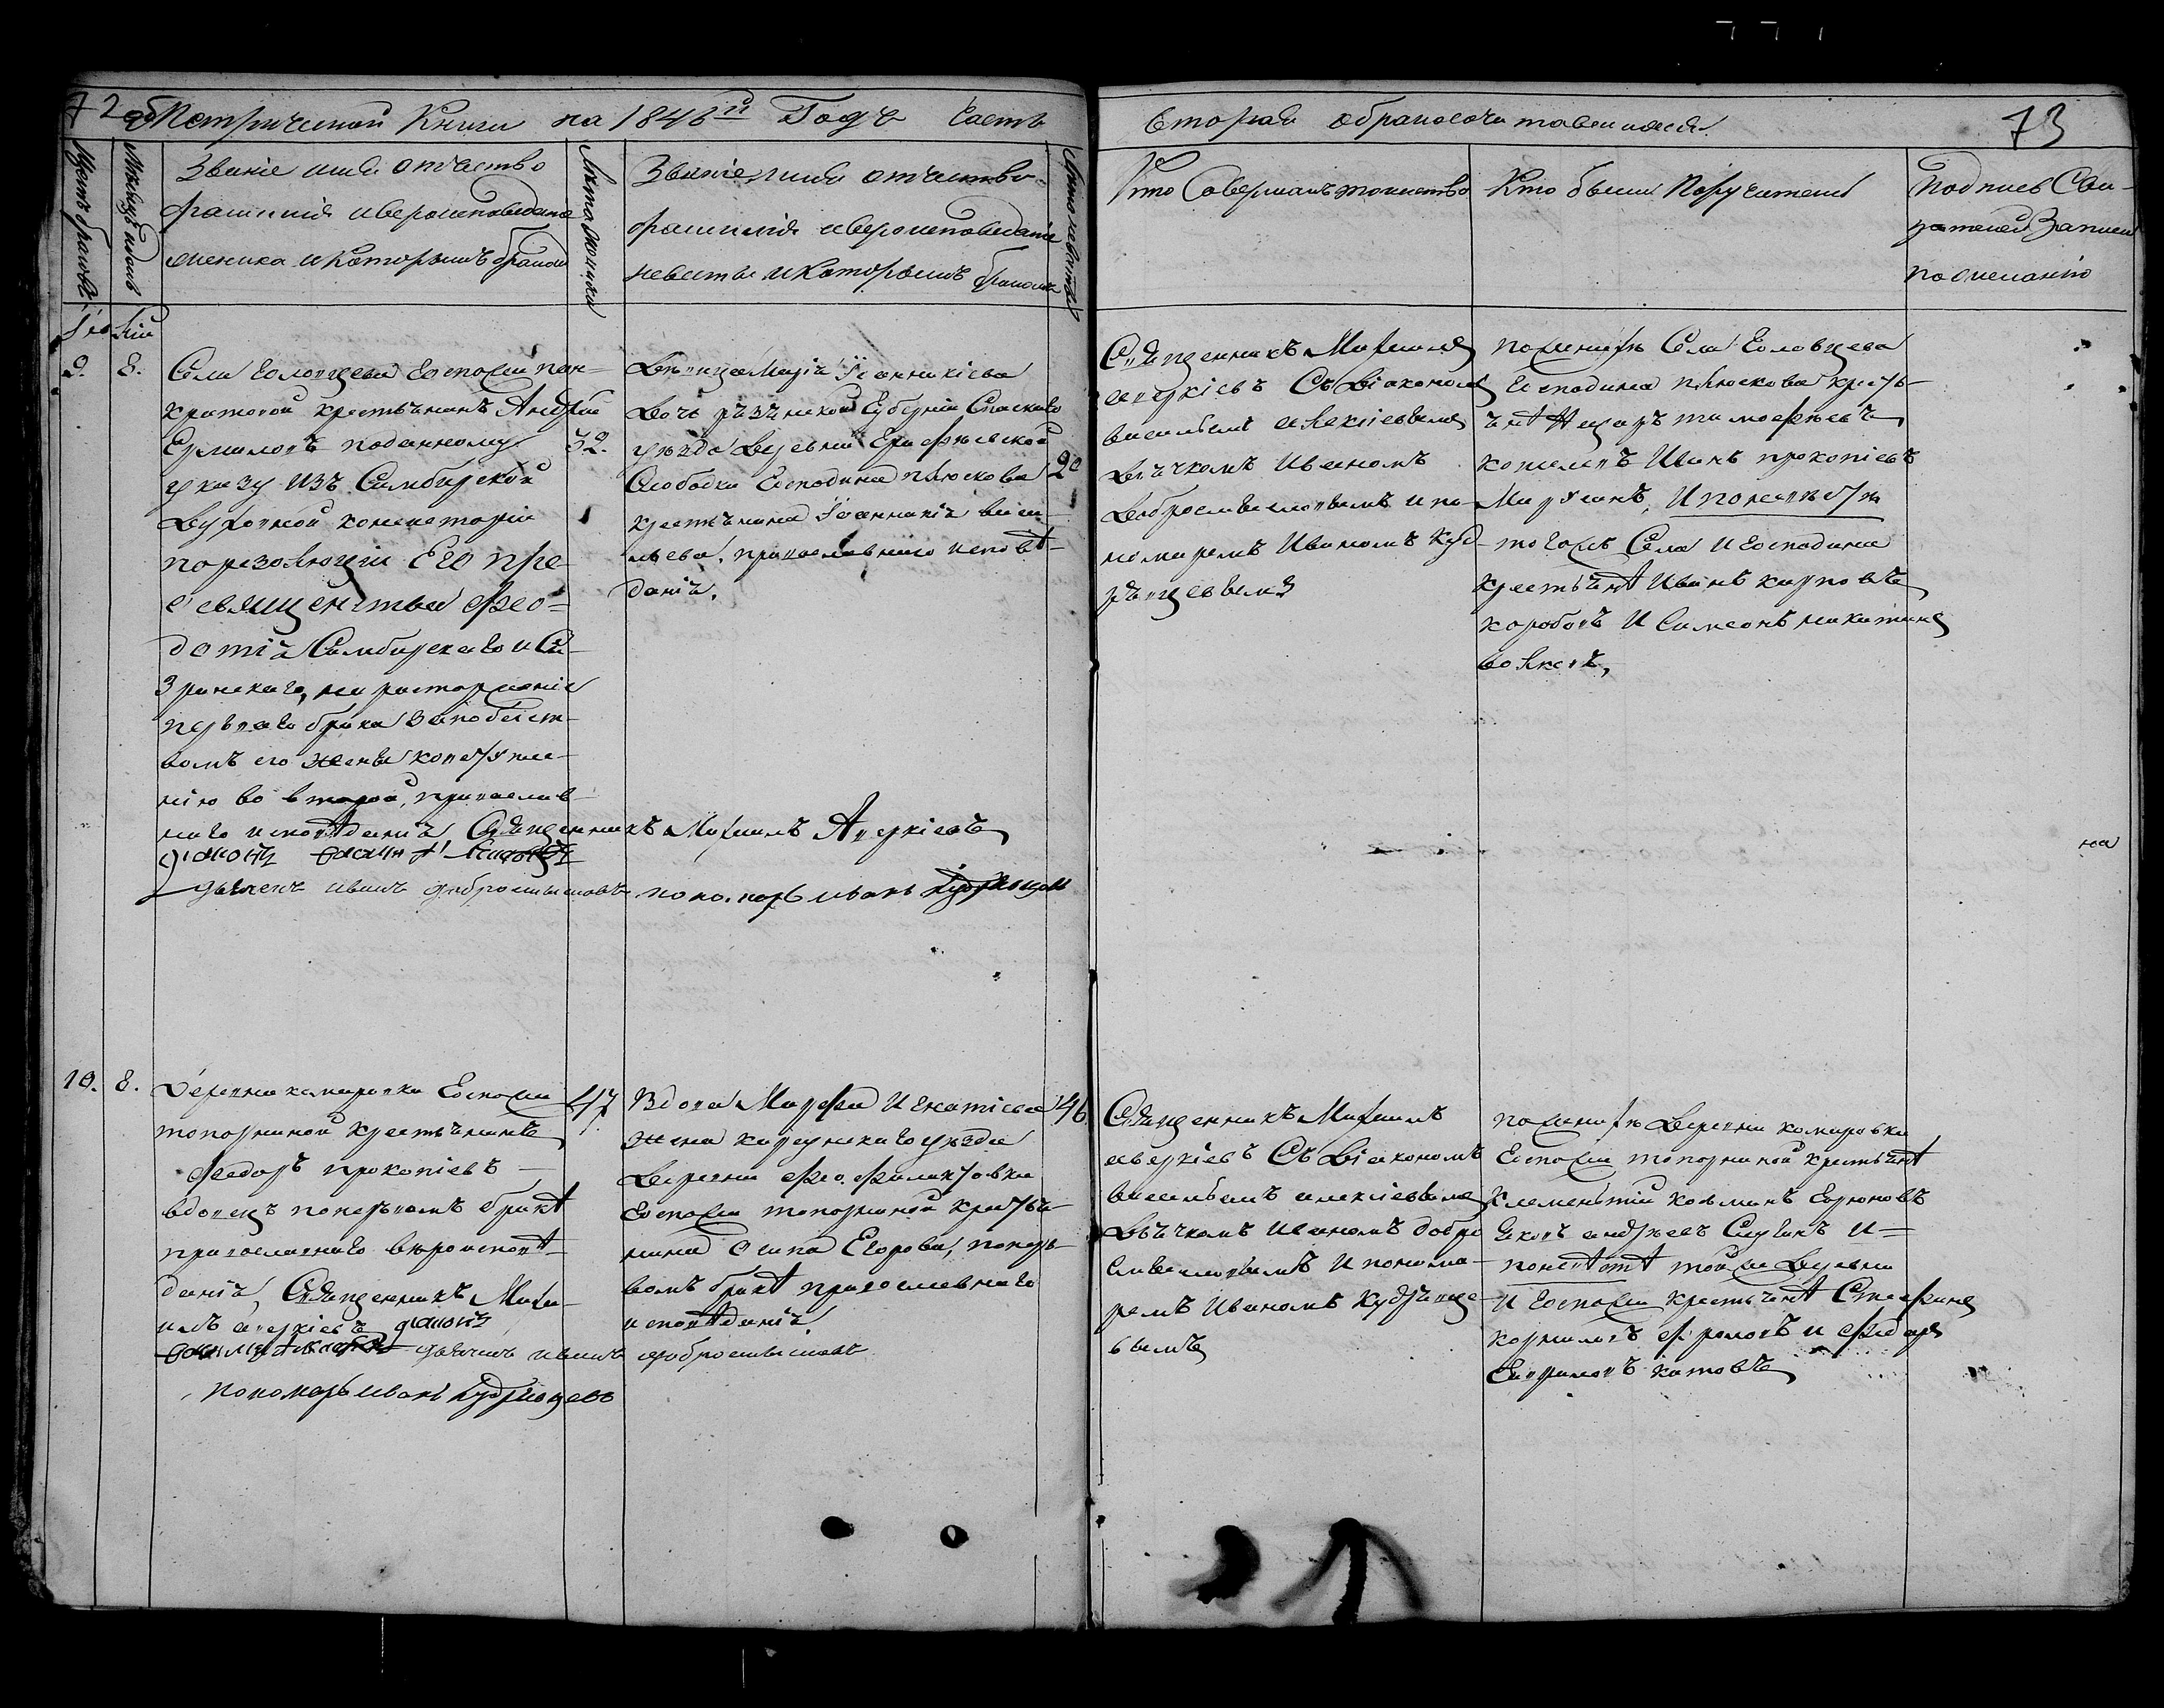 72 об Метрической Книги на 1846й Годъ Часть
вторая обракосочитавшихся.
73
Щетъ браковъ.
Мѣсяцъ и день
Званіе имя отчество
фамилія ивероисповедание
жениха и Которымъ бракомъ
Лета жениха
Званіе имя отчество
фамилія ивероисповедание
невесты и Которымъ бракомъ
Лета невесты
Кто Совершалъ таинство
Кто были Поручители
Подпись Сви-
детелей Записи
по желанію
Іюлій
9.
8.
Села Головцева Госпожи пан-
кратовой крестьянинъ Андрей
Ермиловъ поданному
указу изъ Симбирской
Духовной консисторіи
порезолюціи Его пре
освященства Фео-
дотія Симбирскаго и Сы-
зранскаго, на расторжение
перваго брака запобегст-
вомъ его жены ковступле-
нію во второй, православ-
наго исповѣданія Священникъ Михаилъ Аверкіевъ
діаконъ
дьячекъ иванъ добромысловъ пономарь иванъ Кудрявцевъ
32.
Девица Марія Іоанникіева
Дочь рязанской Губерніи Спаскаго
уезда Деревни Ерофеевской
Слободки Господина плюскова
крестьянина Іоанникія васи-
льева, православнаго исповѣ-
данія.
20
Священникъ Михаилъ
аверкіевъ Съ Діакономъ
васильемъ алексіевымъ
Дьячкомъ Иваномъ
Добромысловымъ и по-
номаремъ Иваномъ Куд-
рявцевымъ
пожениху Села Головцева
Господина плюскова кресть-
янѣ Назаръ тимофеевъ
кошелевъ Иванъ прокопіевъ
Мирхинъ, И поневесте
тогожъ Села и Господина
крестьянѣ Иванъ карповъ
коробовъ И Симеонъ никитинъ
волковъ,
10.
8.
Деревни комаровки Госпожи
топорниной крестьянинъ
Федоръ прокопіевъ
вдовецъ поперьвомъ бракѣ
православнаго вероисповѣ-
данія, Священникъ Миха-
илъ аверкіевъ діаконъ
дьячекъ иванъ добромысловъ
пономарь иванъ Кудрявцевъ
47
Вдова Марфа Игнатіева
жена карсунскаго уезда
Деревни Феофилактовки
Госпожи топорниной кресть-
янина Осипа Егорова, поперь-
вомъ бракѣ православнаго
исповѣданія
46
Священникъ Михаилъ
аверкіевъ Съ Діакономъ
васильемъ алексіевымъ
Дьячкомъ Иваномъ добро
мысловымъ И понома-
ремъ Иваномъ Кудрявце-
вымъ
пожениху Деревни комаровки
Госпожи топорниной крестьянѣ
Клементий козминъ
Яковъ андреевъ И
поневѣстѣ тойже Деревни
И Госпожи крестьянѣ Стефанъ
корниловъ фроловъ и Федоръ
Гавриловъ котовъ